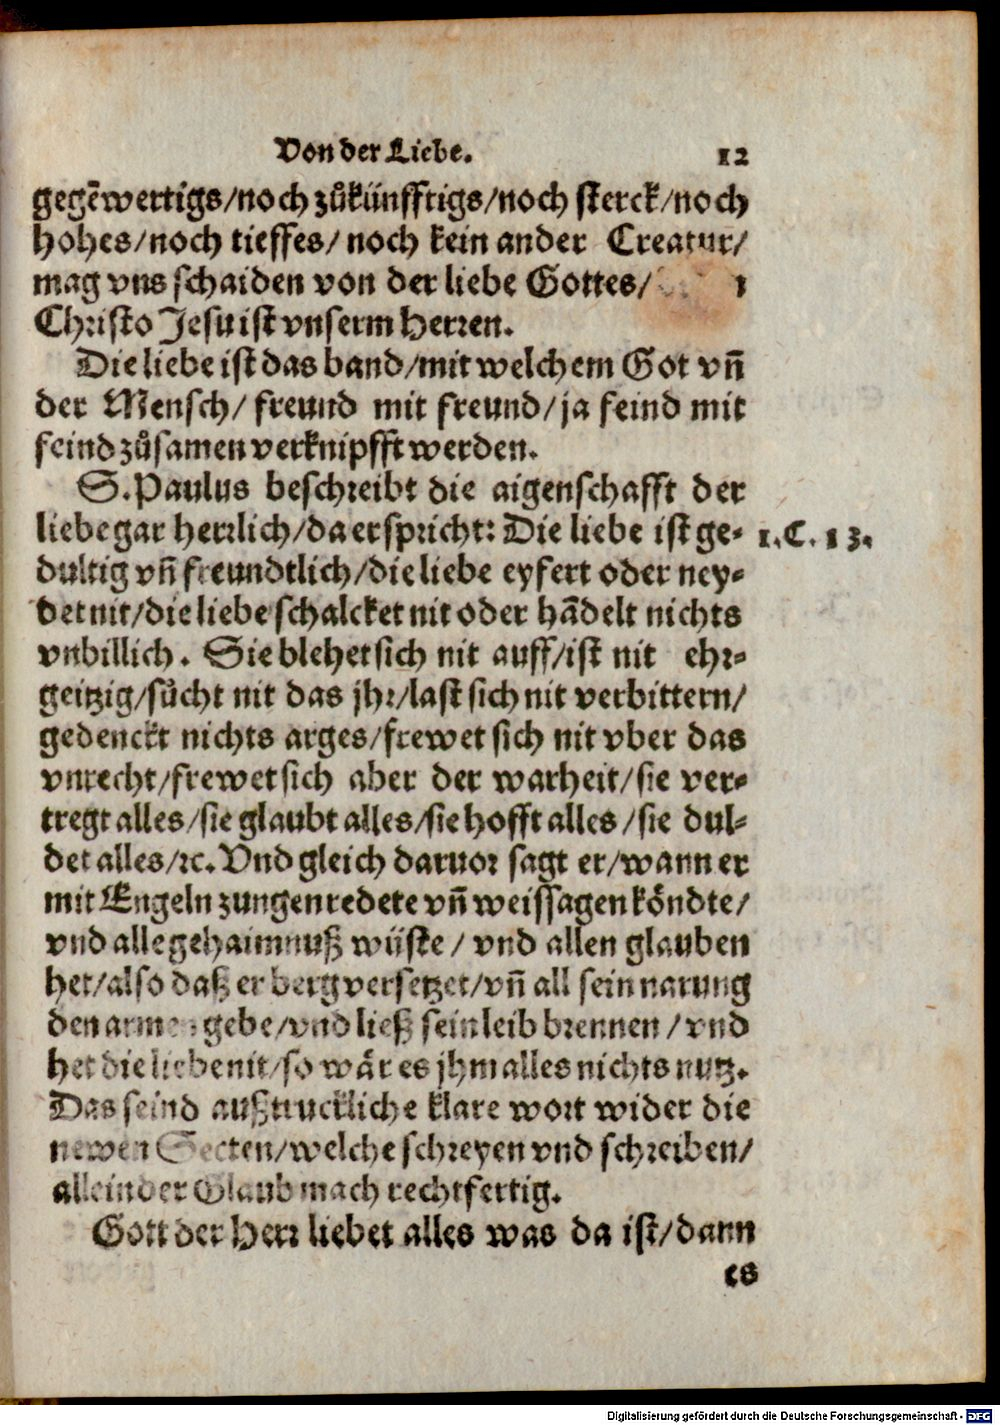 Von der Liebe. 12
gegẽwertigs/noch zůkünfftigs/noch sterck/noch
hohes/noch tieffes/ noch kein ander Creatur/
mag vns schaiden von der liebe Gottes/
Christo Jesu ist vnserm Herren.
Die liebe ist das band/mit welchem Got vñ
der Mensch/ freund mit freund/ja feind mit
feind zůsamen verknipfft werden.
S. Paulus beschreibt die aigenschafft der
liebe gar herrlich/da er spricht: Die liebe ist ge- 1.C.13.
dultig vñ freundtlich/die liebe eyfert oder ney-
det nit/die liebe schalcket nit oder hãdelt nichts
vnbillich. Sie blehet sich nit auff/ist nit ehr-
geitzig/sůcht nit das jhr/last sich nit verbittern/
gedenckt nichts arges/frewet sich nit vber das
vnrecht/frewet sich aber der warheit/sie ver-
tregt alles/sie glaubt alles/sie hofft alles/sie dul-
det alles/ꝛc. Vnd gleich daruor sagt er/wann er
mit Engeln zungen redete vñ weissagen köndte/
vnd alle gehaimnuß wüste/ vnd allen glauben
het/also daß er berg versetzet/vñ all sein narung
den armen gebe/vnd ließ sein leib brennen/vnd
het die liebe nit/so wär es jhm alles nichts nutz.
Das seind außtruckliche klare wort wider die
newen Secten/welche schreyen vnd schreiben/
allein der Glaub mach rechtfertig.
Gott der Herr liebet alles was da ist/dann
es
Digitalisierung gefördert durch die Deutsche Forschungsgemeinschaft - DFG